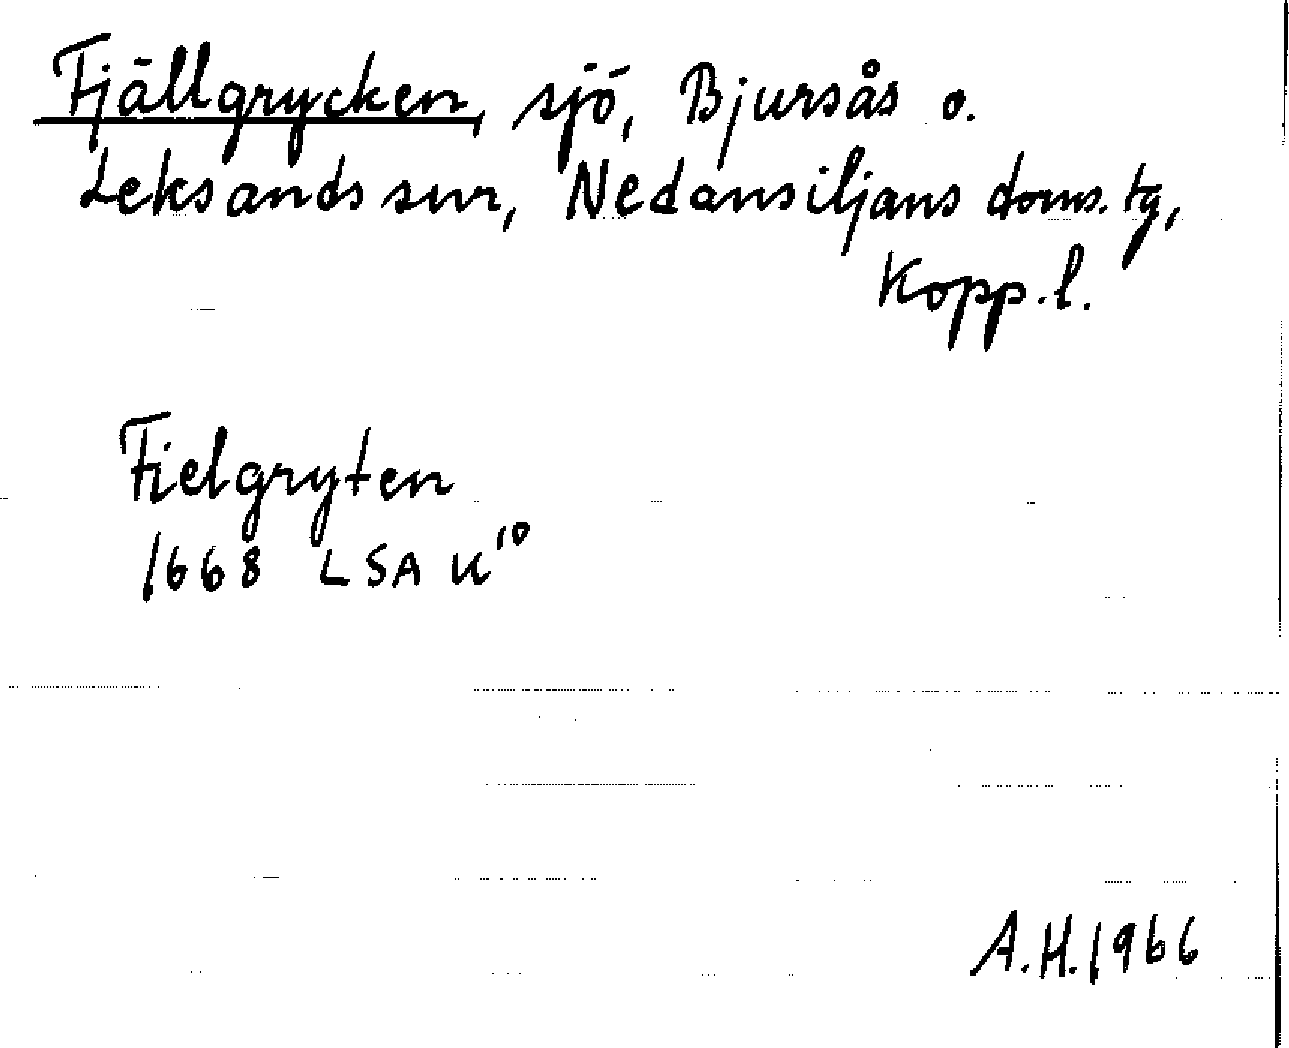 Fjällgrycken, sjö, Bjursås o.
Leksands snr, Nedansiljans doms. tg,
Kopp. l.
Fielgryten
1668 LSA U¹⁰
A.H. 1966